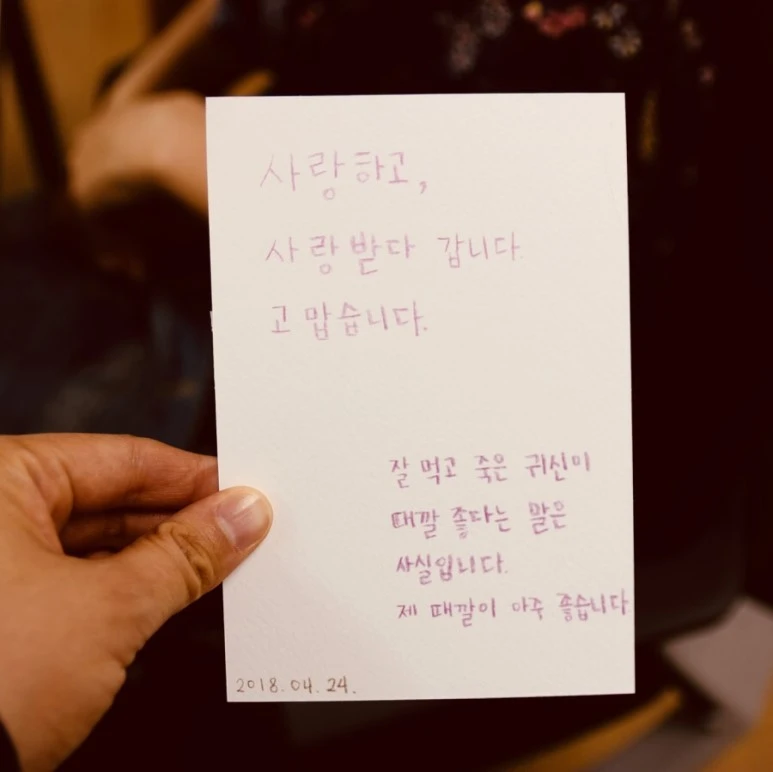 사랑하고,
사랑받다 갑니다.
고맙습니다.
잘 먹고 죽은 귀신이
때깔 좋다는 말은
사실입니다.
제 때깔이 아주 좋습니다.
2018. 04. 24.